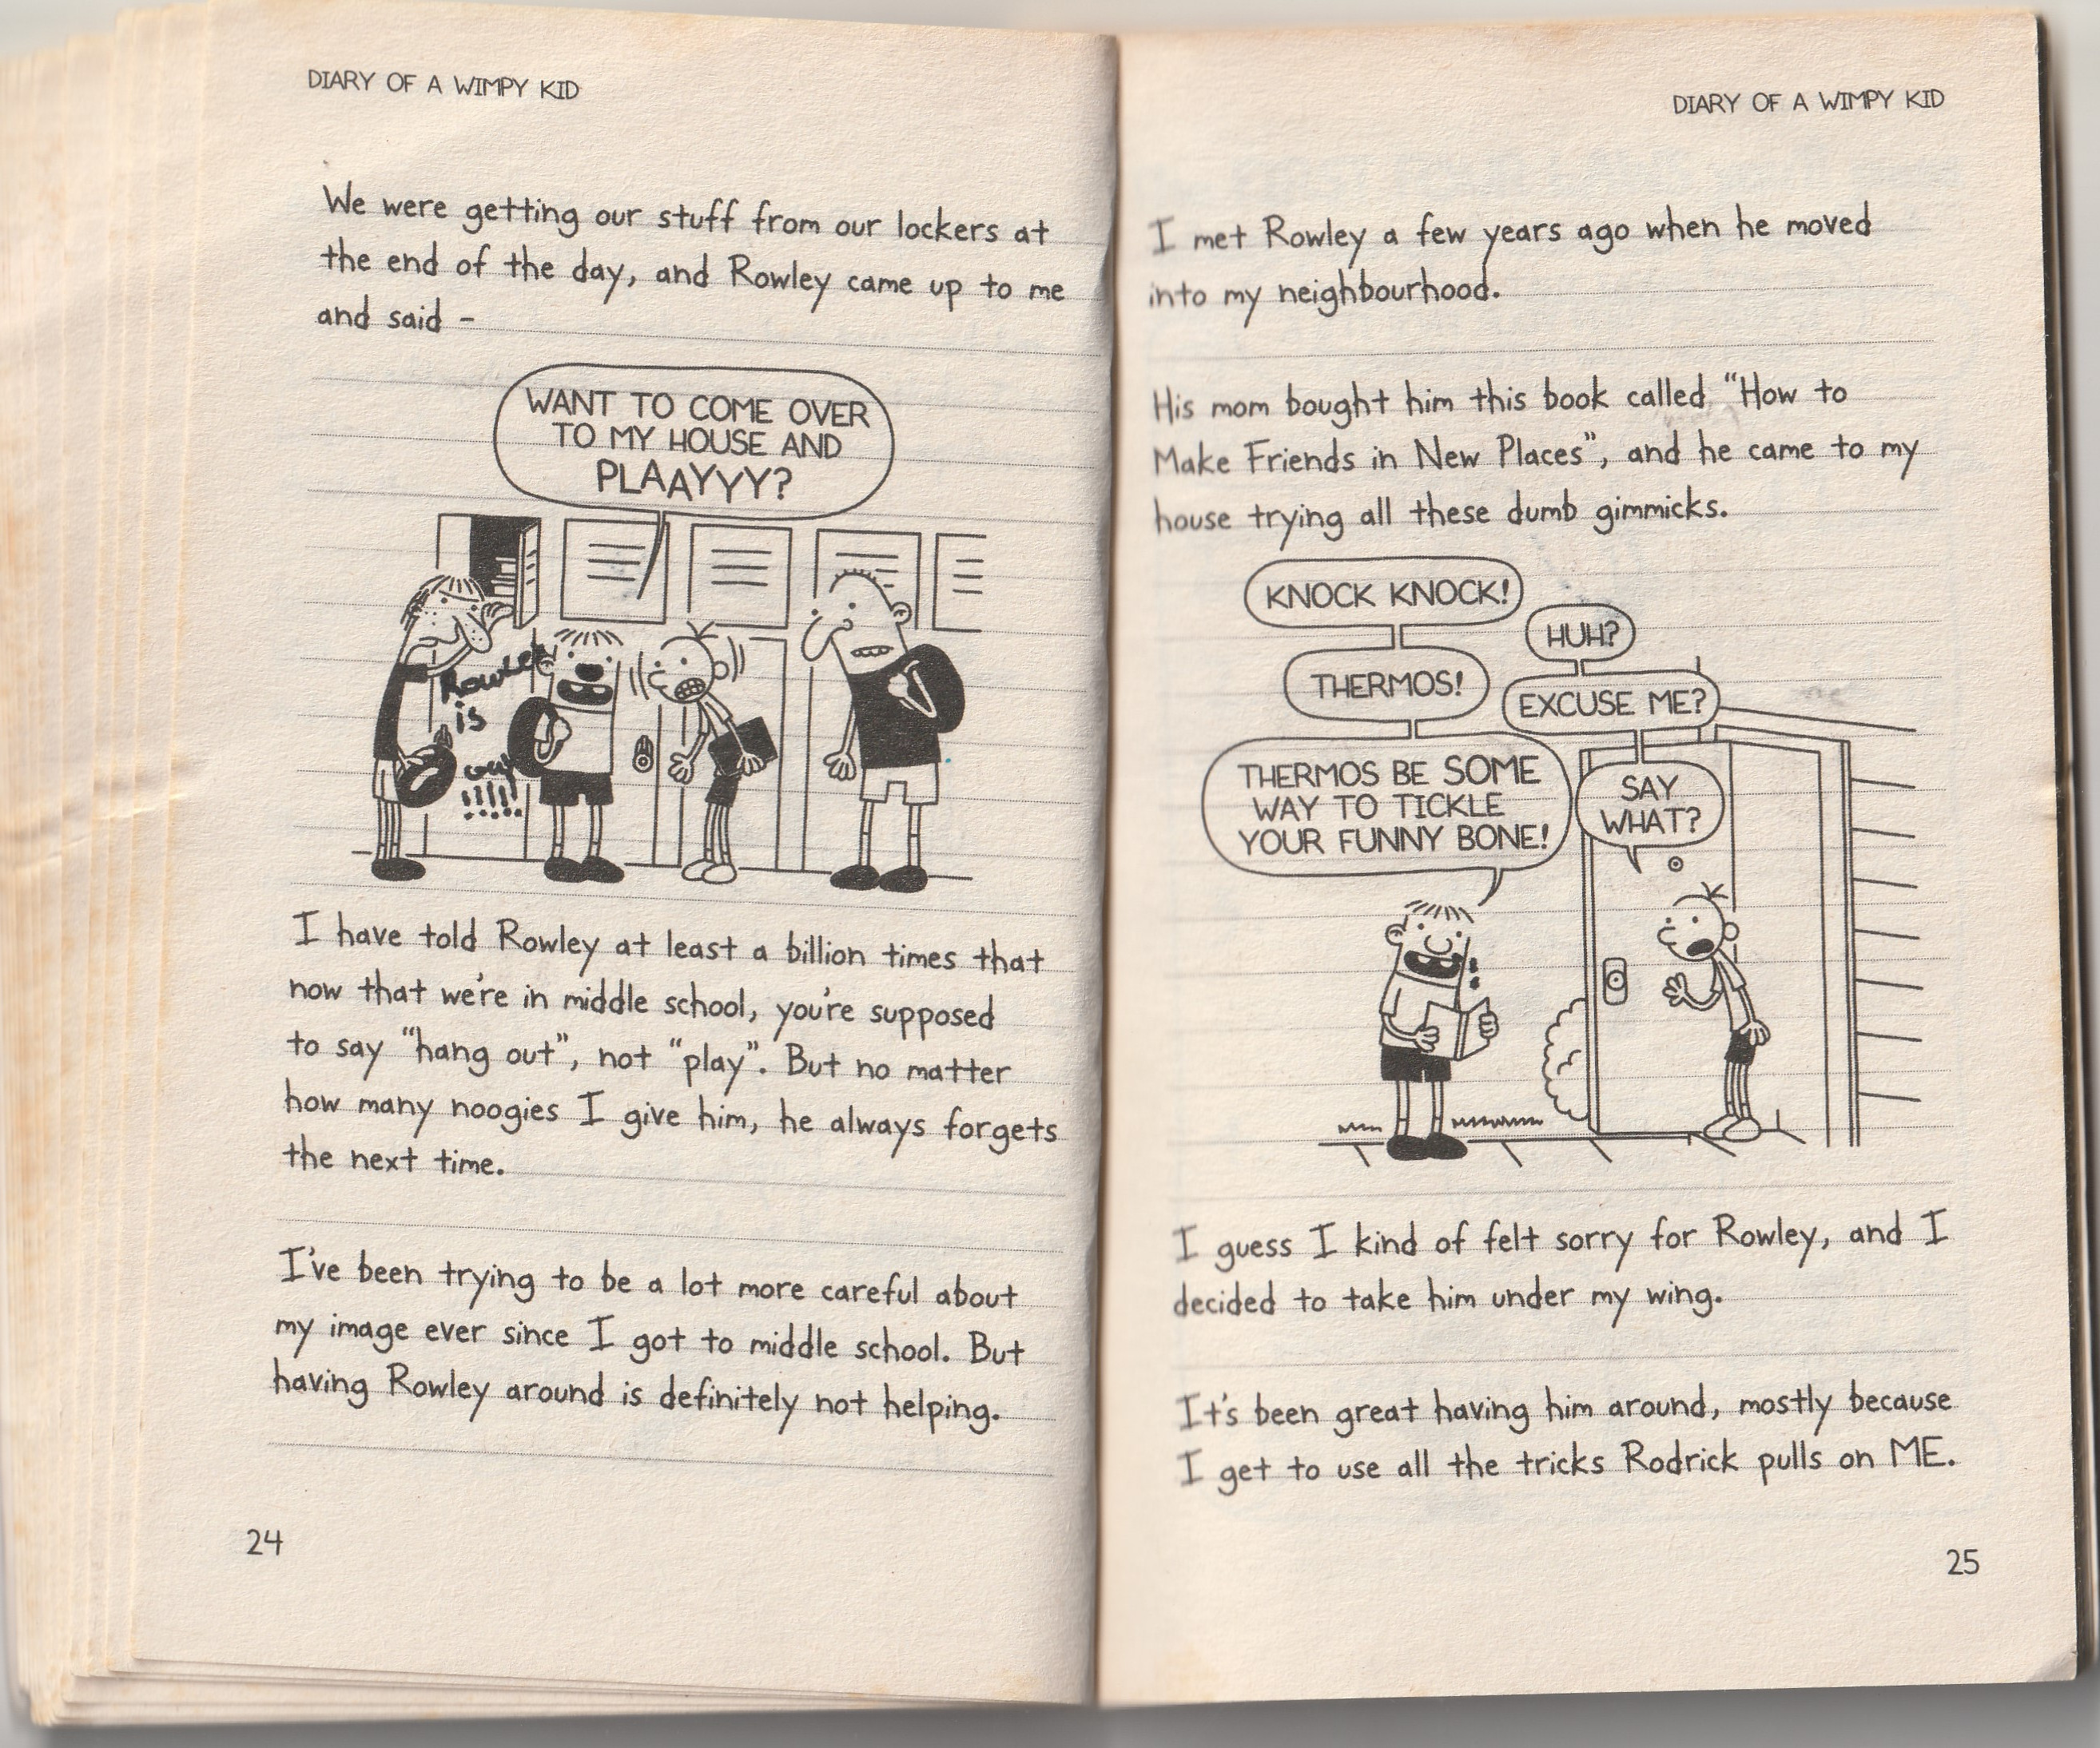 DIARY OF A WIMPY KID
We were getting our stuff from our lockers at
the end of the day, and Rowley came up to me
and said -
WANT TO COME OVER
TO MY HOUSE AND
PLAAYYY?
Rowley
is
gay
!!!!!
I have told Rowley at least a billion times that
now that we're in middle school, you're supposed
to say "hang out", not "play". But no matter
how many noogies I give him, he always forgets
the next time.
I've been trying to be a lot more careful about
my image ever since I got to middle school. But
having Rowley around is definitely not helping.
24
DIARY OF A WIMPY KID
I met Rowley a few years ago when he moved
into my neighbourhood.
His mom bought him this book called "How to
Make Friends in New Places", and he came to my
house trying all these dumb gimmicks.
KNOCK KNOCK!
HUH?
THERMOS!
EXCUSE ME?
THERMOS BE SOME
WAY TO TICKLE
YOUR FUNNY BONE!
SAY
WHAT?
I guess I kind of felt sorry for Rowley, and I
decided to take him under my wing.
It's been great having him around, mostly because
I get to use all the tricks Rodrick pulls on ME.
25